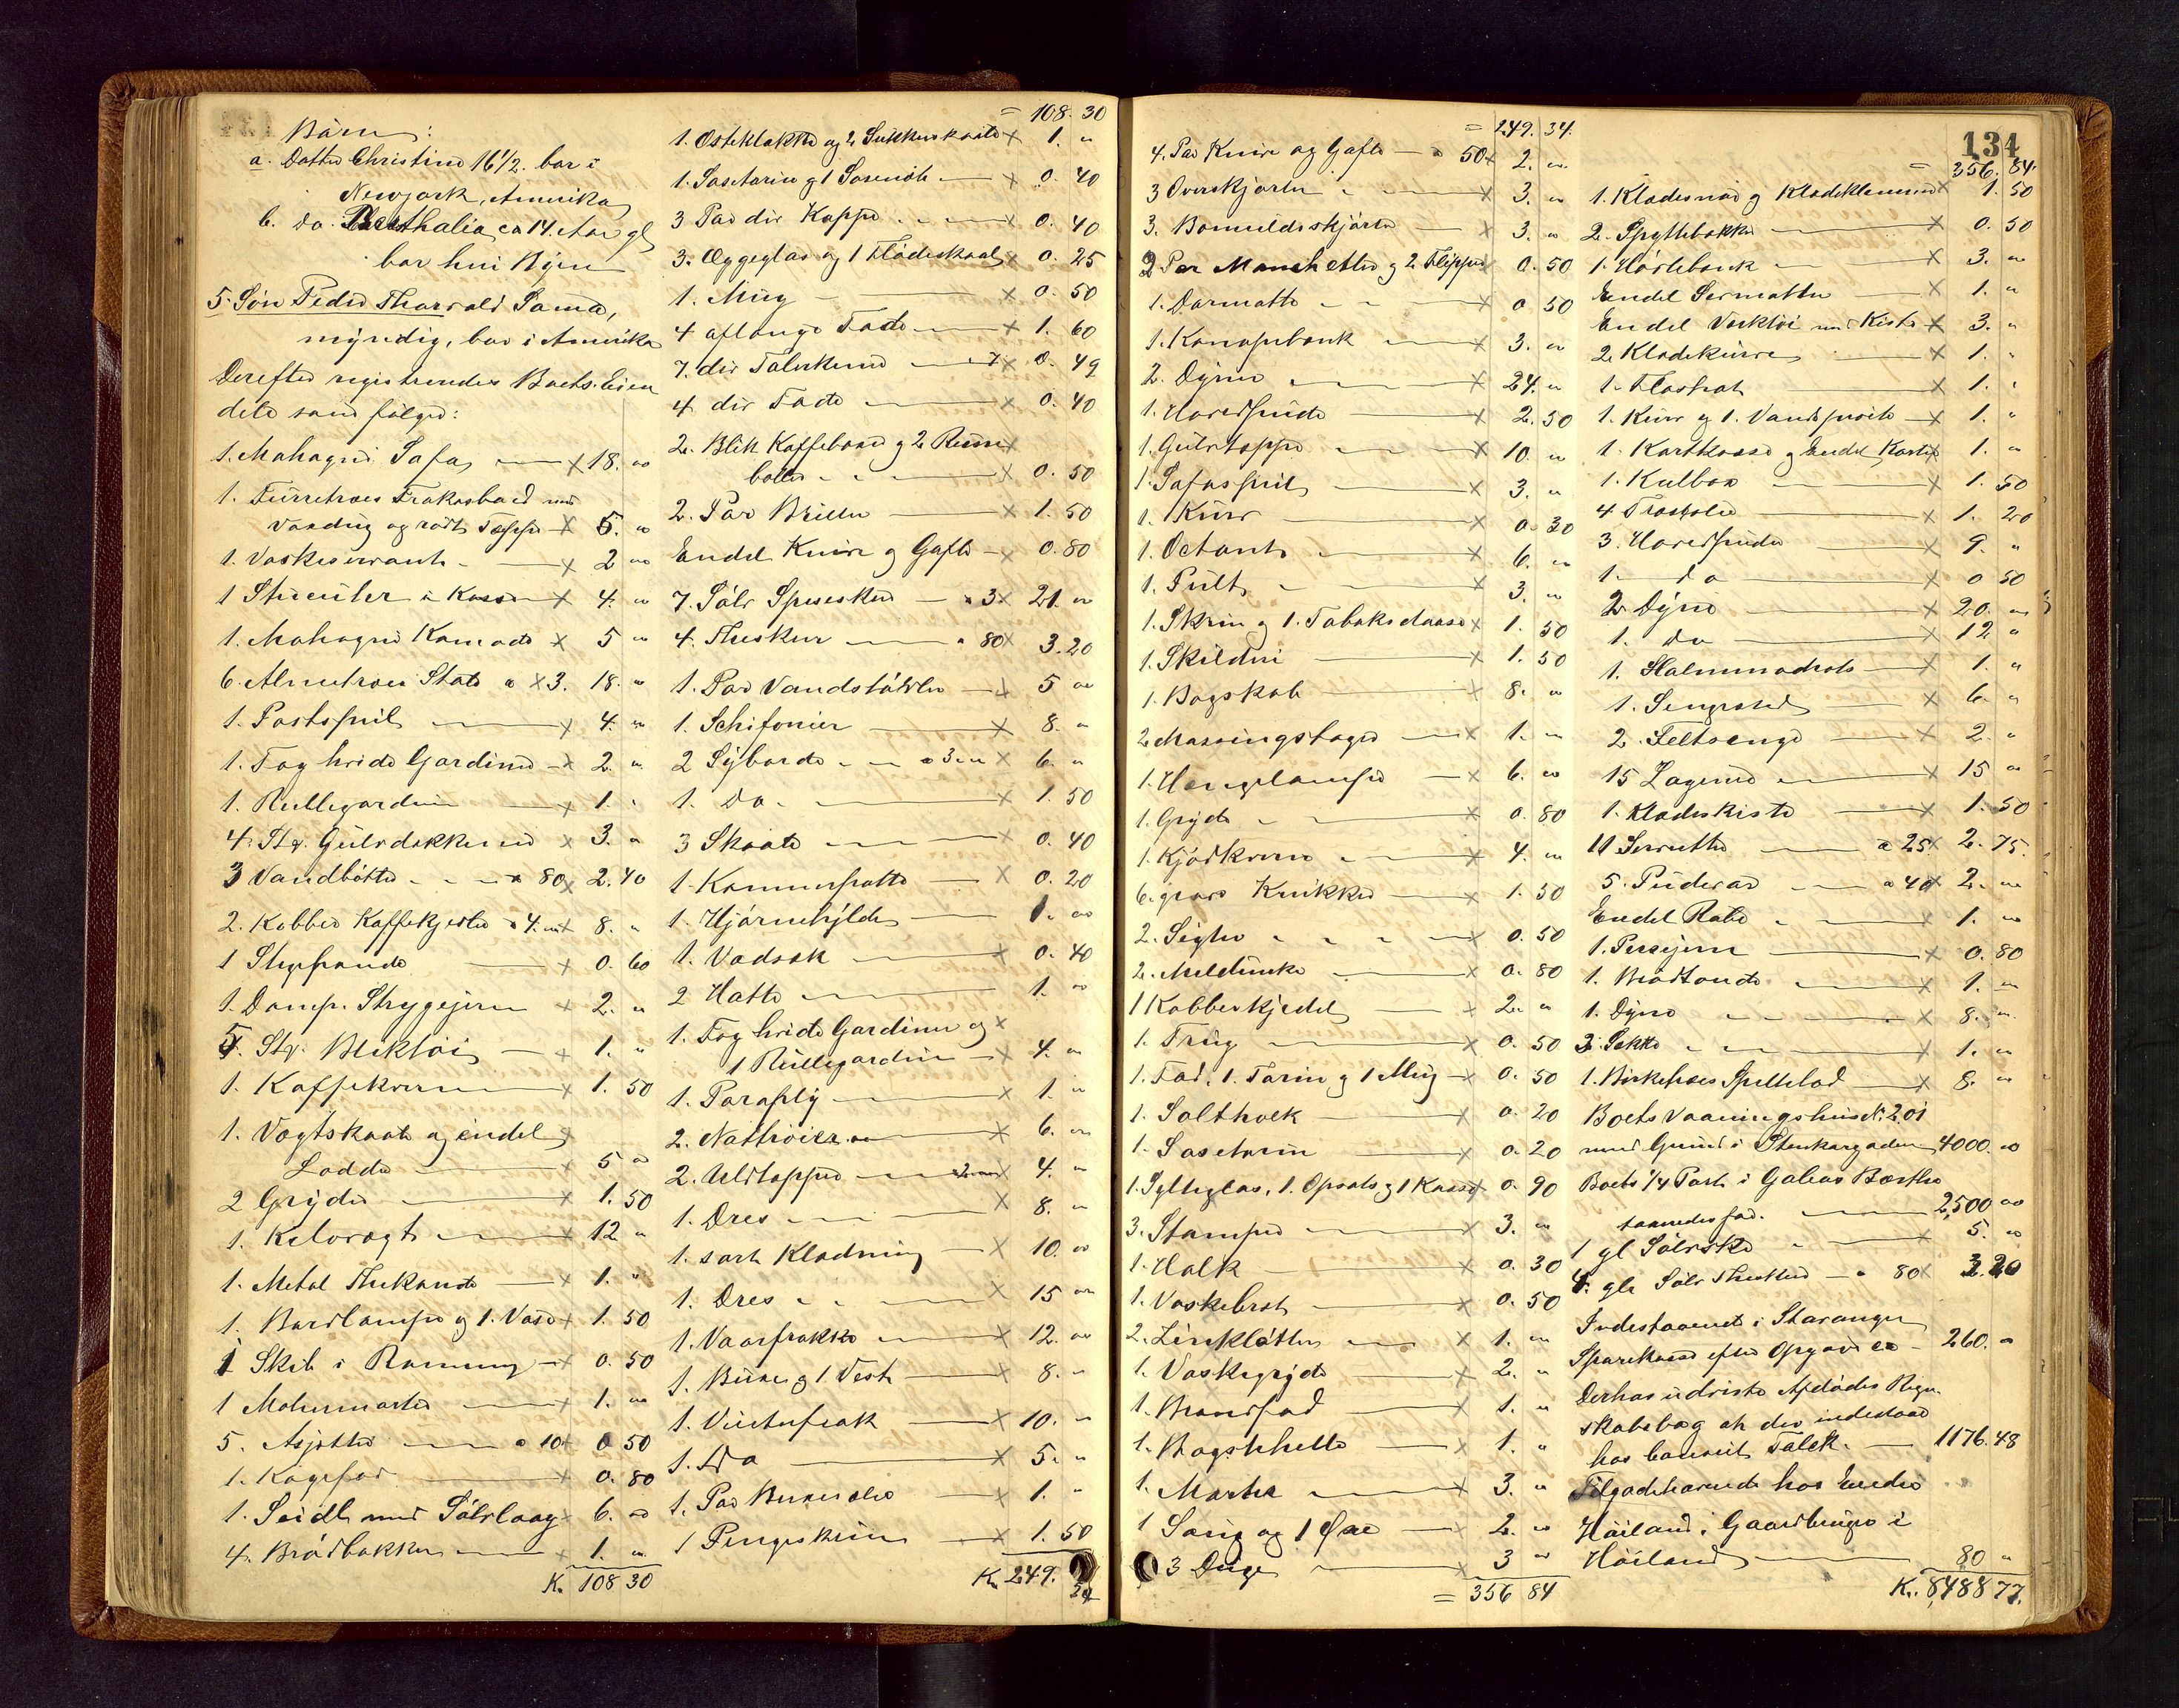 Børn:
a. Datter Christine 16 1/2. bor i
Newyork, Amerika
b. do. Berthalia ca 14. Aar gl
bor her i Byen
5. Søn Peder Thorvald Sama,
myndig, bor i Amerika
Derefter registreredes Boets Eien
dele som følger:
1. Mahagni Sofa × 18. "
1. Furretræes Trækasbord med
Voxdug og rødt Tæppe × 5. "
1. Vaskeservante × 2 "
1 Stueuhr i Kasse × 4. "
1. Mahogni Komode × 5 "
6. Almetræes Stole a × 3. 18. "
1. Postspeil × 4. "
1. Fag hvide Gardiner × 2. "
1. Rullegardin × 1. "
4. Stk. Gulvdækkener × 3. "
3 Vandbøtter a 80 × 2.40
2. Kobber Kaffekjedler a 4. × 8. "
1 Stegepande × 0. 60
1. Damp. Strygejern × 2. "
5. Stk. Bliktøi × 1. "
1. Kaffekvern × 1. 50
1. Vægtskaal og endel
Lodder × 5 "
2 Gryder × 1. 50
1. Kilovægt × 12 "
1. Metal Thekande × 1. "
1. Bordlampe og 1. Vase × 1. 50
1 Skib i Ramme × 0. 50
1 Mohermorter × 1. "
5. Asjetter a 10 × 0 50
1. Kagefad × 0. 80
1. Seidl med Sølvlaag × 6. "
4. Brødbakker × 1. "
Kr. 108 30
= 108. 30
1. Osteklokke og 2 Sukkerkopper × 1. "
1. Saseterin og 1 Sausenøb × 0. 40
3 Par div Kopper × 0. 40
3. Æggeglas og 1 Flødeskaal × 0. 25
1. Mug × 0. 50
4 aflange Fade × 1. 60
7. div Talerkener a 7 × 0. 49
4 div Fade × 0. 40
2. Blik Kaffeboxer og 2
boller × 0. 50
2. Par Briller × 1. 50
Endel Knive og Gafler × 0. 80
7. Sølv Spiseskeer a 3 × 21. "
4. Theskeer a 80 × 3.20
1. Par Vandstøvler × 5 "
1. Schifonier × 8. "
2 Syborde a 3 × 6. "
1. Do. × 1. 50
3 Skaale × 0. 40
1. Kammerpotte × 0. 20
1. Hjørnehylde 1. "
1. Vadsæk × 0. 40
2 Hatte 1. "
1. Fag hvide Gardiner og ×
1 Rullegardin × 4. "
1. Paraply × 1. "
2. Nattrøier × 6. "
2. Uldtæpper a 2 × 4. "
1. Dres × 8. "
1. sort Klædning × 10. "
1. Dres × 15 "
1. Vaarfrakke × 12. "
1. Buxe og 1 Vest × 8. "
1. Vinterfrak × 10. "
1. Do × 5. "
1. Par Buxeseler × 1. "
1 Pengeskrin × 1. 50
Kr. 249. 34
= 249. 34.
4. Par Knive og Gafler a 50 × 2. "
3 Overskjorter × 3. "
3. Bomuldsskjorter × 3. "
2 Par Manchetter og 2 Flipper × 0. 50
1. Dørmatte × 0 50
1. Kanapebænk × 3. "
2. Dyner × 24. "
1. Hovedpude × 2. 50
1. Gulvtæppe × 10. "
1. Sofaspeil × 3. "
1. Kurv × 0. 30
1. Octant × 6. "
1. Pult × 3. "
1. Skrin og 1. Tobaksdaase × 1. 50
1. Skilderi × 1. 50
1. Bogskab × 8. "
2 Massingstager × 1. "
1. Hængelampe × 6. "
1. Gryde 0. 80
1. Kjødkvern × 4. "
6. grove Krukker × 1. 50
2. Sigter × 0. 50
2. Meldunke × 0. 80
1 Kobberkjedel × 2. "
1. Trug × 0. 50
1. Fad, 1. Terin og 1 Mug × 0. 50
1. Saltholk × 0. 20
1. Saseterin × 0. 20
1. Sylteglas, 1. Opsats og 1 Kasse × 0. 90
3. Stamper × 3. "
1. Holk × 0. 30
1. Vaskebræt × 0. 50
2. Zinkbøtter × 1. "
1. Vaskegryde × 2. "
1. Brændfad × 1. "
1. Bogshylle × 1. "
1. Morter × 3. "
1 Saug og 1 Øxe × 2. "
3 Duge × 3 "
= 356 84
134
= 356. 84.
1. Klædesnor og Klædeklemmer × 1. 50
2. Spyttebakker × 0. 50
1. Høvlebænk × 3. "
Endel Sermatter × 1. "
Endel Værktøi med Kiste × 3. "
2. Klædekurve × 1. "
1. Flaskat × 1. "
1. Kurv og 1. Vandsprøite × 1. "
1. Kartkasse og Endel Karter × 1. "
1. Kulbox × 1. 50
4 Træstoler × 1. 20
3. Hovedpuder × 9. "
1. do × 0 50
2. Dyne × 20. "
1. do × 12 "
1. Halmmadrats × 1. "
1. Sengested × 6. "
2. Feltsenge × 2. "
15 Lagener × 15 "
1. Klædeskiste × 1. 50
11 Servietter a 25 × 2. 75.
5. Pudevar a 40 × 2. "
Endel Reb × 1. "
1. Persejern × 0. 80
1. Brødtønde × 1. "
1. Dyne × 8. "
3. Sække × 1. "
1. Birketræes Spillebord × 8. "
Boets Vaaningshus Nr. 201
med Grund i Stenkargaden 4000. "
Boets 1/4 Part i Galeas Bertha
2,500 "
1 gl Sølvske × 5. "
4. gle Sølv Theskeer a 80 × 3.20
Indestaaende i Stavanger
Sparekasse efter Opgave ca 260. "
Derhos udviste Afdødes Regn-
skabsbog at der indestaar
hos Falck. 1176. 48
Tilgodehavende hos Endre
Høiland i Gaardbruger i
Høiland 80 "
Kr. 8,488 77.